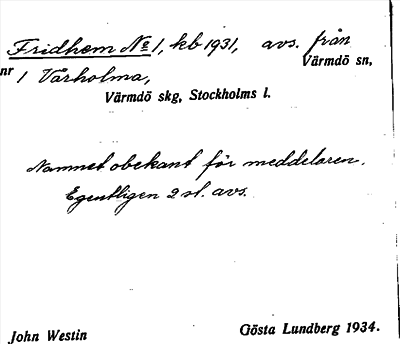 Fridhem No 1, kb 1931, avs. från
Värmdö sn,
nr 1 Vårholma,
Värmdö skg, Stockholms l.
Namnet obekant för meddelaren.
Egentligen 2 st. avs.
John Westin
Gösta Lundberg 1934.